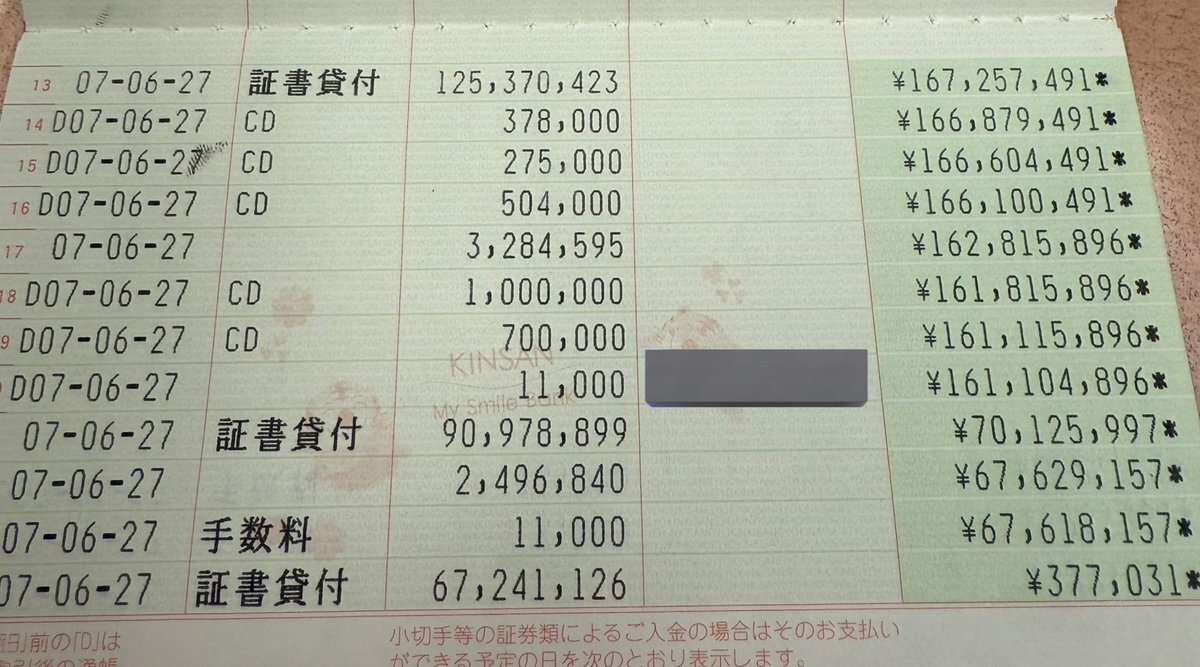 13 07-06-27 証書貸付 125,370,423 ¥167,257,491*
14 D07-06-27 CD 378,000 ¥166,879,491*
15 D07-06-27 CD 275,000 ¥166,604,491*
16 D07-06-27 CD 504,000 ¥166,100,491*
17 07-06-27 3,284,595 ¥162,815,896*
18 D07-06-27 CD 1,000,000 ¥161,815,896*
9 D07-06-27 CD 700,000 ¥161,115,896*
KINSAN
D07-06-27 11,000 ¥161,104,896*
My Smile Bank
07-06-27 証書貸付 90,978,899 ¥70,125,997*
07-06-27 2,496,840 ¥67,629,157*
07-06-27 手数料 11,000 ¥67,618,157*
07-06-27 証書貸付 67,241,126 ¥377,031*
日」前の「D」は 小切手等の証券類によるご入金の場合はそのお支払い
ができる予定の日を次のとおり表示します。